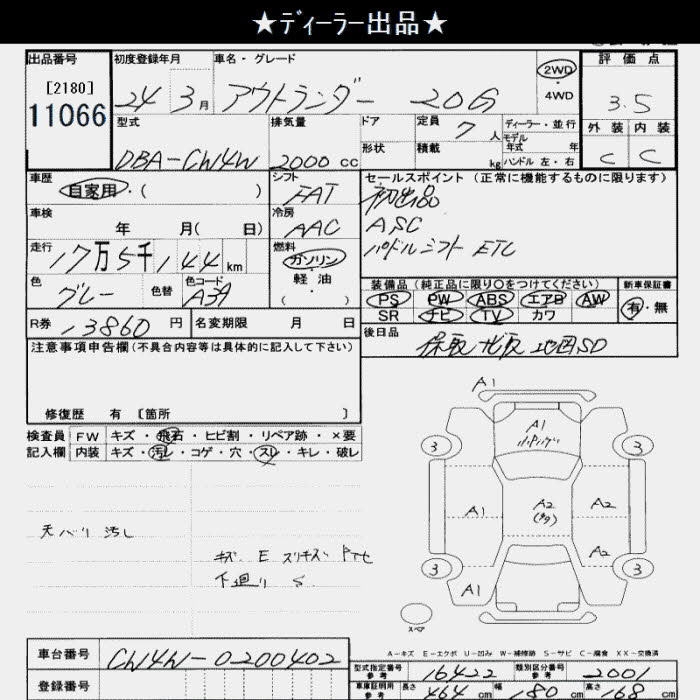 ★ディーラー出品★
出品番号 初度登録年月 車名・グレード 評価点
[2180] 24 3月 アウトランダー 20G 2WD ・4WD 3.5
11066
型式 排気量 ドア 定員 7人 ディーラー・並行 外装 内装
モデル年式 年
DBA-CW4W 2000cc 形状 積載 kg ハンドル 左・右 C C
車歴 シフト セールスポイント (正常に機能するものに限ります)
自家用・( ) FAT 初出品
車検 冷房 ASC
年 月( 日) AAC パドルシフト ETC
走行 燃料
17万5千144km ガソリン
軽油
( )
装備品 (純正品に限り○をつけてください) 新車保証書
色 色替 色コード PS PW ABS エアB AW 有・無
グレー A39 SR ナビ TV カワ
R券 13860円 名変期限 月 日 後日品
保取 地図SD
注意事項申告欄(不具合内容等は具体的に記入して下さい)
修復歴 有 [箇所 ]
検査員 FW キズ・飛石・ヒビ割・リペア跡・×要
記入欄 内装 キズ・汚レ・コゲ・穴・スレ・キレ・破レ
天バリ 汚し
キズ E スリキズ
下廻り S
A1
A1
3 3
A1 A2 A2
A2
3 3
A1
スペア
A-キズ E-エクボ U-凹み W-補修跡 S-サビ C-腐食 XX-交換済
車台番号 CW4W-0200402
登録番号
型式指定番号 参考 16422 類別区分番号 参考 2001
車庫証明用 参考 長さ 464cm 幅 180cm 高さ 168cm